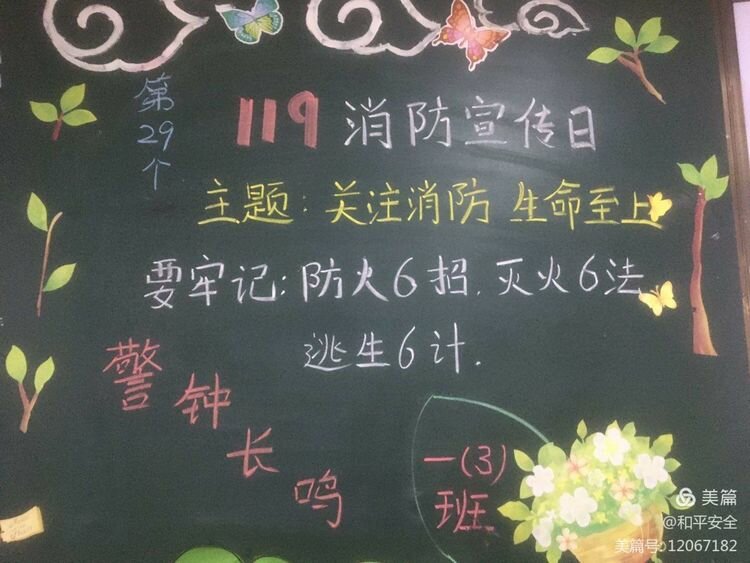 第29个
119消防宣传日
主题:关注消防 生命至上
要牢记:防火6招.灭火6法
逃生6计.
警钟长鸣
一(3)
班
美篇
@和平安全
美篇号:12067182